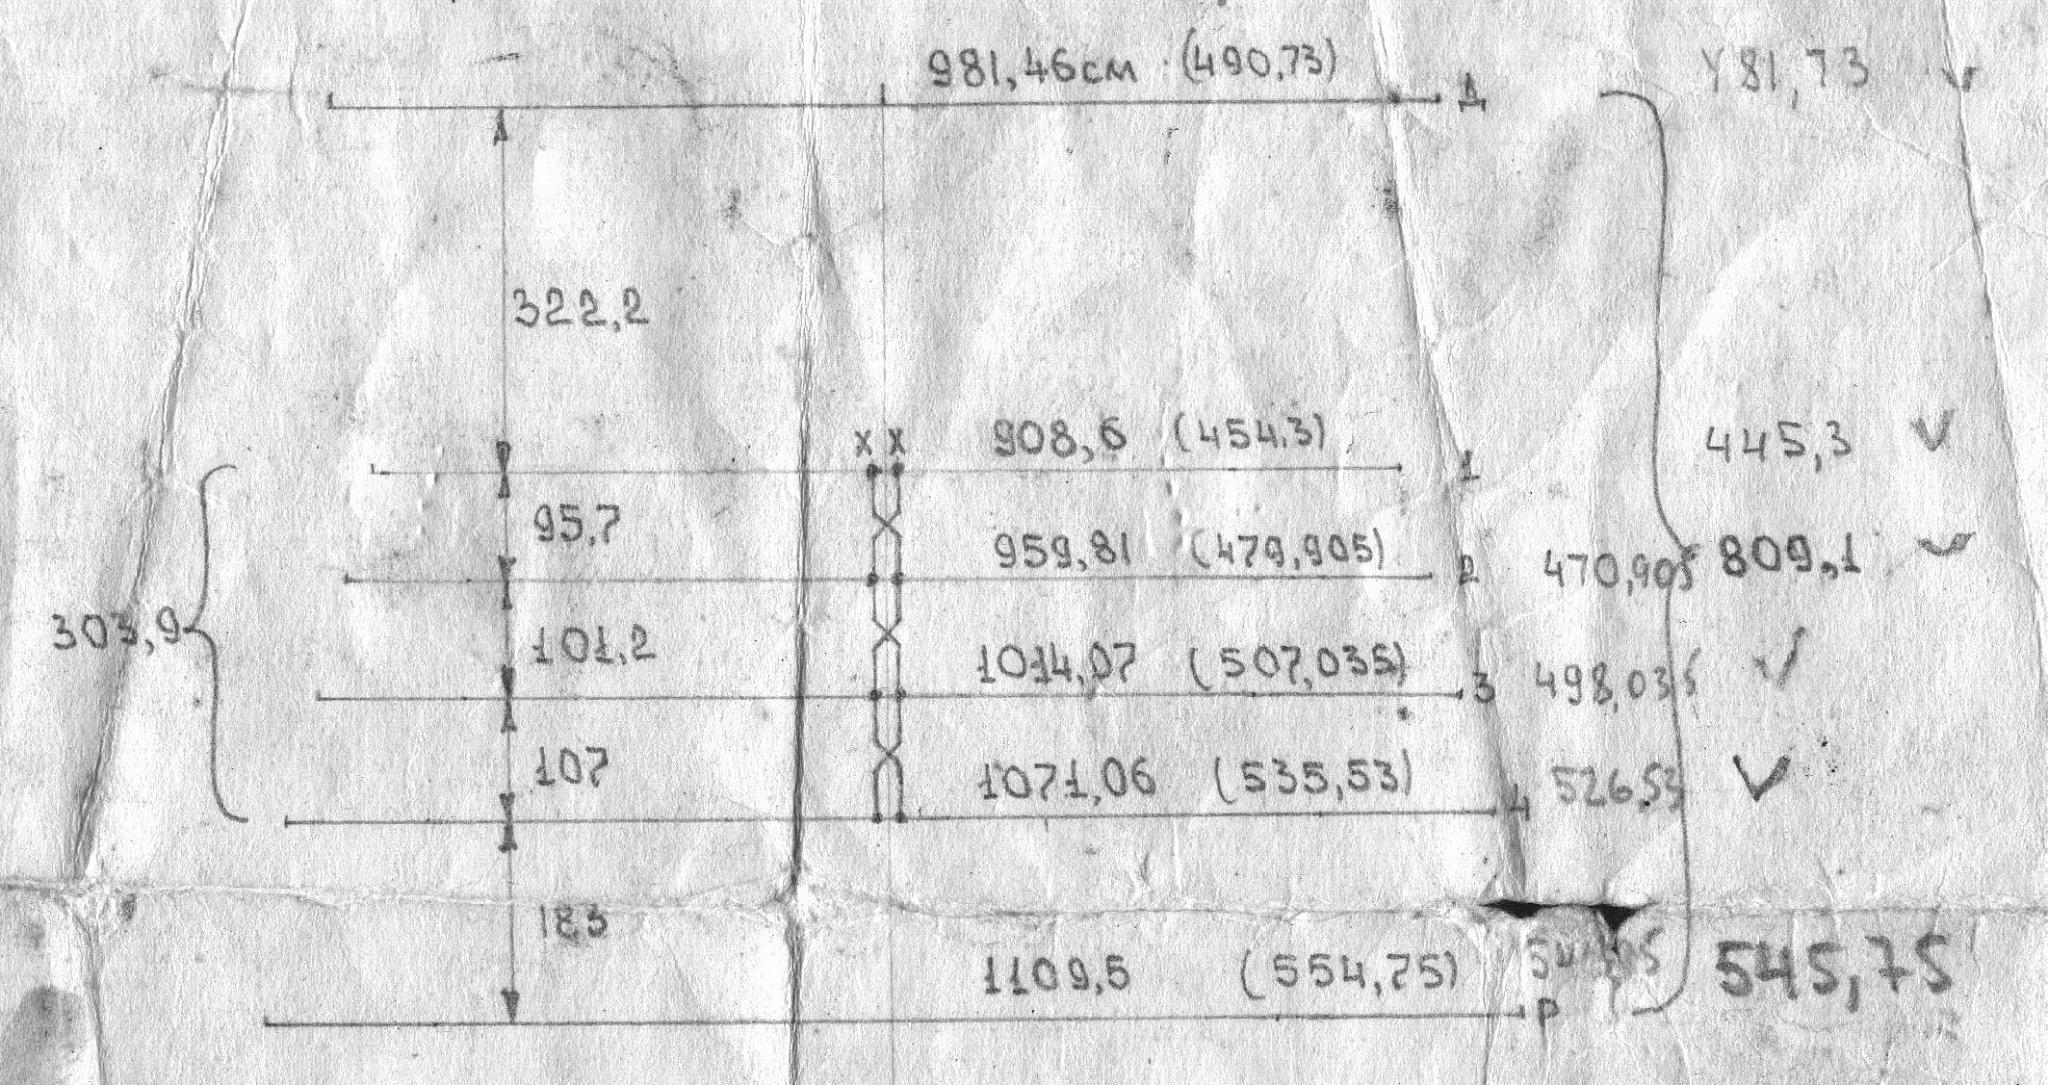 981,46см (490,73) Д 481,73
322,2
x x 908,6 (454,3) 1 445,3
95,7
959,81 (479,905) 2 470,905 809,1
303,9
101,2
1014,07 (507,035) 3 498,035
107
1071,06 (535,53) 4 526,53
183
1109,5 (554,75) 545,75
P